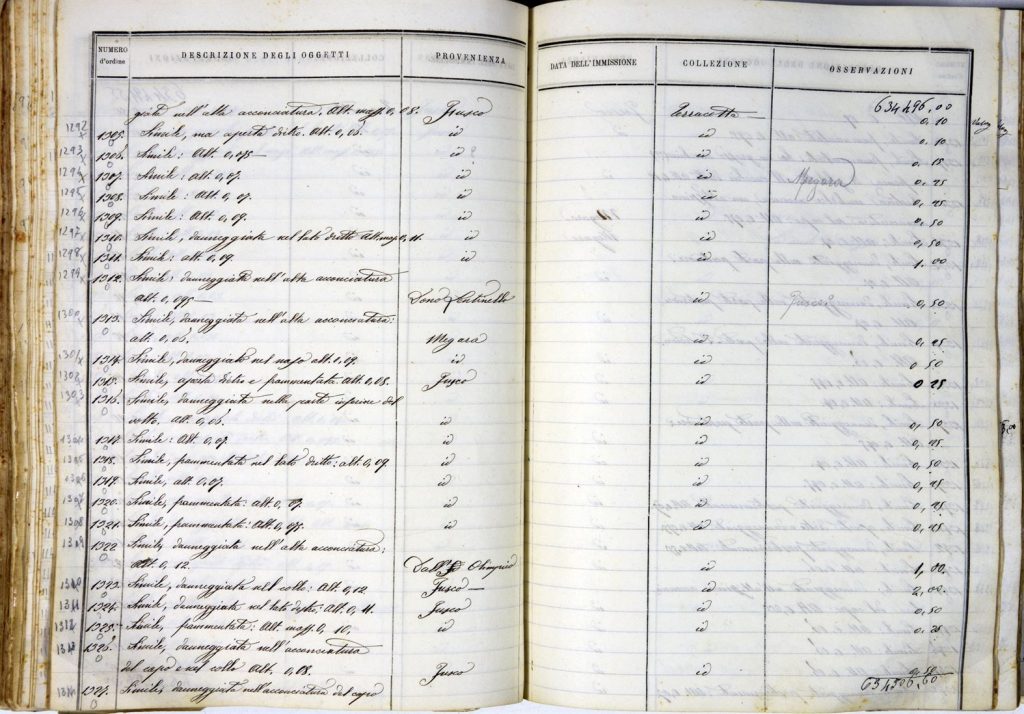 NUMERO d'ordine DESCRIZIONE DEGLI OGGETTI PROVENIENZA DATA DELL'IMMISSIONE COLLEZIONE OSSERVAZIONI
giata nell'alta acconciatura. Alt. mass. 0,08. Fusco Terracotta 634496,00
1292 1305. Simile, ma aperta dietro. Alt. 0,06. id id 0,10
1293 1306. Simile: Alt. 0,075 id id 0,10
1294 1307. Simile: alt. 0,07. id id Megara 0,15
1295 1308. Simile: Alt. 0,07. id id 0,25
1296 1309. Simile: Alt. 0,09. id id 0,25
1297 1310. Simile, danneggiata nel lato dritto Alt. mas. 0,11. id id 0,50
1298 1311. Simile: alt. 0,09. id id 0,50
1299 1312. Simile: danneggiata nell'alta acconciatura 1,00
alt. 0,095 Dono id 0,50
1300 1313. Simile, danneggiata nell'alta acconciatura:
alt. 0,06. Megara id 0,25
1301 1314. Simile, danneggiata nel naso alt. 0,09. id id 0 50
1302 1315. Simile, aperta dietro e frammentata. Alt. 0,08. Fusco id 0 25
1303 1316. Simile, danneggiata nella parte inferiore del
volto. alt. 0,06. id id 0, 50
1304 1317. Simile: Alt. 0,07. id id 0,25
1305 1318. Simile, frammentata nel lato dritto: alt. 0,09. id id 0,50
1306 1319. Simile, alt. 0,07. id id 0,25
1307 1320. Simile, frammentata: alt. 0,07. id id 0,25
1308 1321. Simile, frammentata: Alt. 0,075. id id 0,25
1309 1322 Simile, danneggiata nell'alta acconciatura:
Alt. 0,12. Dall' Olimpico id 1,00.
1310 1323. Simile, danneggiata nel collo: Alt. 0,12 Fusco id 2,00.
1311 1324. Simile, danneggiata nel lato destro: Alt. 0,11. Fusco id 0,50
1312 1325. Simile, frammentata: Alt. mass. 0,10, id id 0,25
1326. Simile, danneggiata nell'acconciatura
del capo e nel collo Alt. 0,08. Fusco id
1327. Simile, danneggiata nell'acconciatura del capo 634506,60